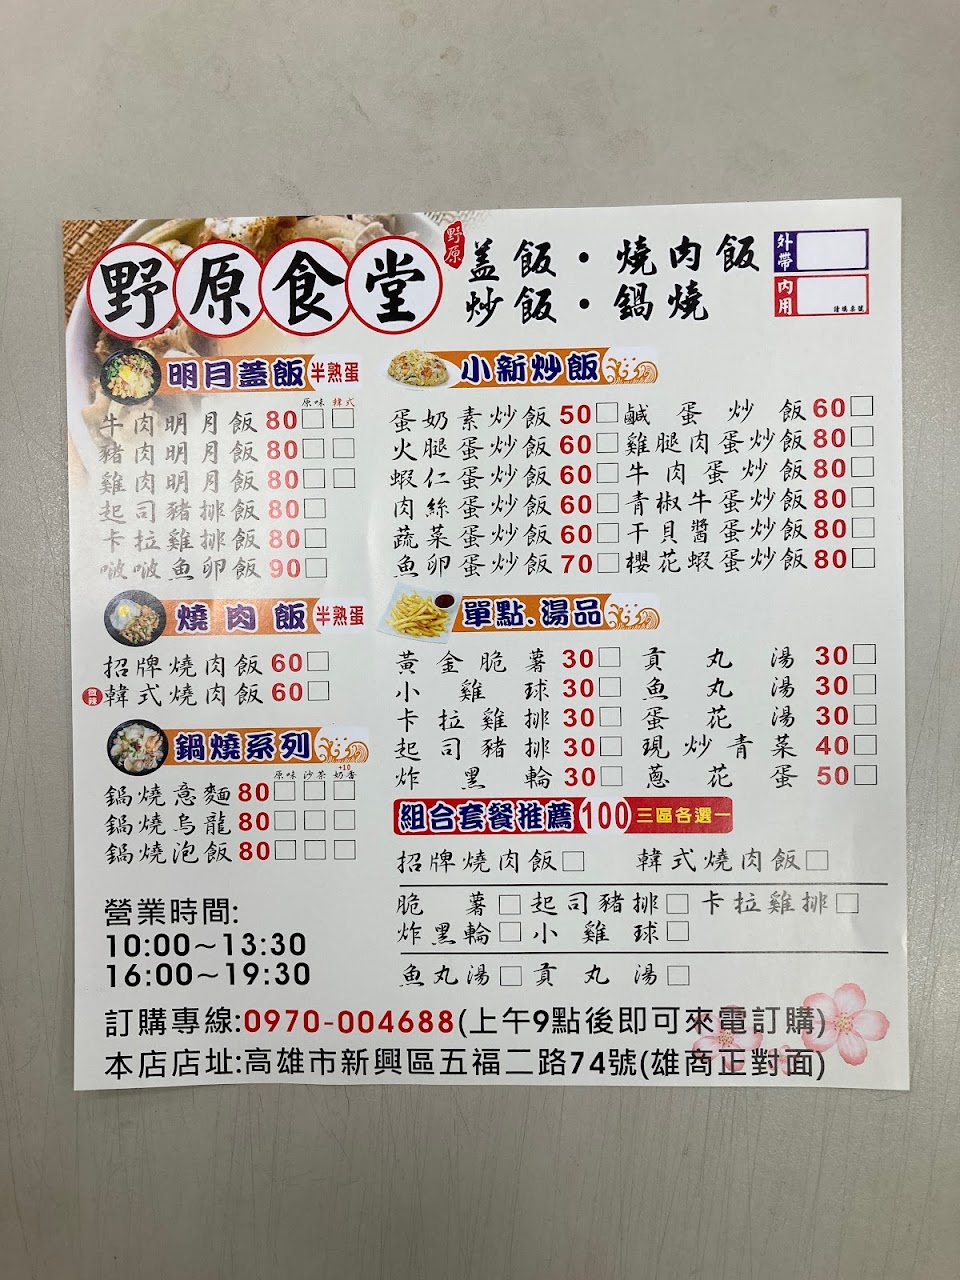 野原食堂
野原
盖飯・燒肉飯
炒飯・鍋燒
外帶
內用
請填桌號
明月蓋飯 半熟蛋
原味 韓式
牛肉明月飯 80□□
豬肉明月飯 80□□
雞肉明月飯 80□□
起司豬排飯 80□
卡拉雞排飯 80□
啵啵魚卵飯 90□
燒肉飯 半熟蛋
招牌燒肉飯 60□
微辣 韓式燒肉飯 60□
鍋燒系列
+10
原味 沙茶 奶香
鍋燒意麵 80□□□
鍋燒烏龍 80□□□
鍋燒泡飯 80□□□
小新炒飯
蛋奶素炒飯 50□ 鹹蛋炒飯 60□
火腿蛋炒飯 60□ 雞腿肉蛋炒飯 80□
蝦仁蛋炒飯 60□ 牛肉蛋炒飯 80□
肉絲蛋炒飯 60□ 青椒牛蛋炒飯 80□
蔬菜蛋炒飯 60□ 干貝醬蛋炒飯 80□
魚卵蛋炒飯 70□ 櫻花蝦蛋炒飯 80□
單點.湯品
黃金脆薯 30□ 貢丸湯 30□
小雞球 30□ 魚丸湯 30□
卡拉雞排 30□ 蛋花湯 30□
起司豬排 30□ 現炒青菜 40□
炸黑輪 30□ 蔥花蛋 50□
組合套餐推薦 100 三區各選一
招牌燒肉飯□ 韓式燒肉飯□
脆薯□ 起司豬排□ 卡拉雞排□
炸黑輪□ 小雞球□
魚丸湯□ 貢丸湯□
營業時間:
10:00～13:30
16:00～19:30
訂購專線:0970-004688(上午9點後即可來電訂購)
本店店址:高雄市新興區五福二路74號(雄商正對面)